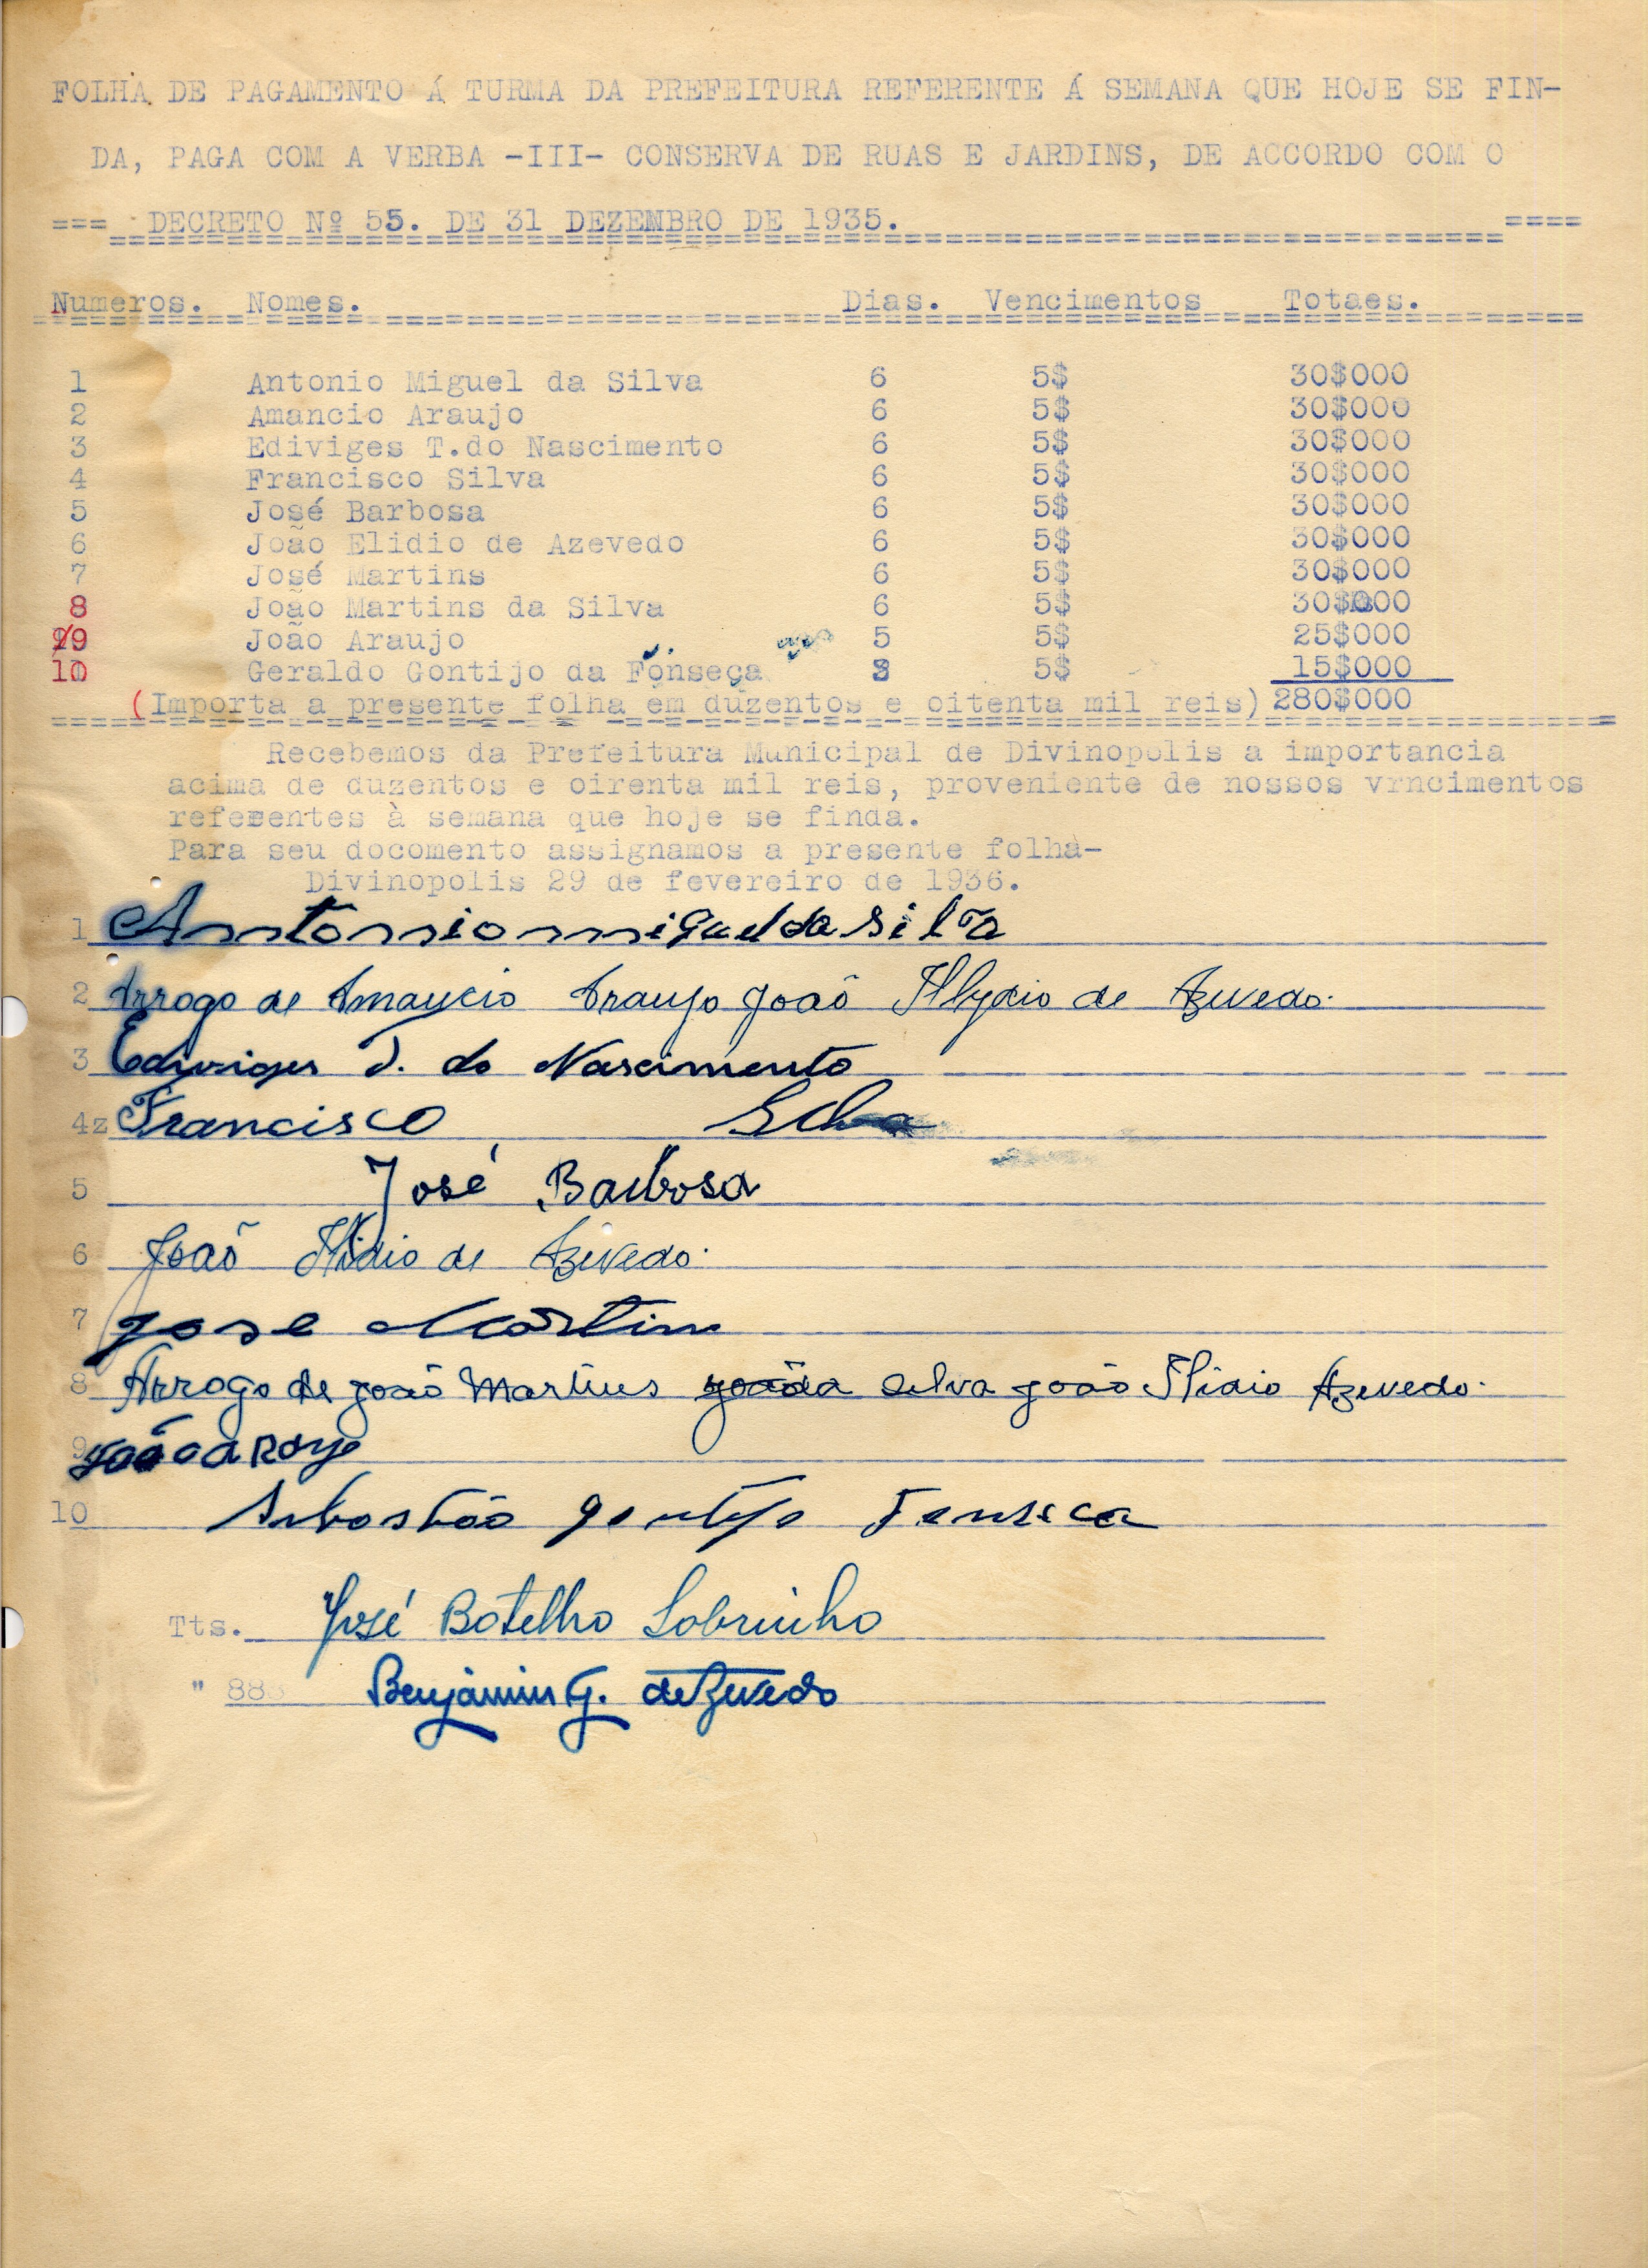 FOLHA DE PAGAMENTO Á TURMA DA PREFEITURA REFERENTE Á SEMANA QUE HOJE SE FIN-
DA, PAGA COM A VERBA -III- CONSERVA DE RUAS E JARDINS, DE ACCORDO COM O
=== DECRETO Nº 55. DE 31 DEZEMBRO DE 1935. ====
Numeros. Nomes. Dias. Vencimentos Totaes.
1 Antonio Miguel da Silva 6 5$ 30$000
2 Amancio Araujo 6 5$ 30$000
3 Ediviges T.do Nascimento 6 5$ 30$000
4 Francisco Silva 6 5$ 30$000
5 José Barbosa 6 5$ 30$000
6 João Elidio de Azevedo 6 5$ 30$000
7 José Martins 6 5$ 30$000
8 João Martins da Silva 6 5$ 30$000
9 João Araujo 5 5$ 25$000
10 Geraldo Gontijo da Fonseca 3 5$ 15$000
(Importa a presente folha em duzentos e oitenta mil reis) 280$000
Recebemos da Prefeitura Municipal de Divinopolis a importancia
acima de duzentos e oirenta mil reis, proveniente de nossos vrncimentos
referentes à semana que hoje se finda.
Para seu docomento assignamos a presente folha-
Divinopolis 29 de fevereiro de 1936.
1 Antonio miguel da Silva
2 Arrogo de Amancio Araujo João Illydio de Azevedo.
3 Edwiges T. do Nascimento
4z Francisco Silva
5 José Barbosa
6 João Ilidio de Azevedo.
7 Jose Martins
8 Arrogo de João Martins da Silva João Ilidio Azevedo.
9 João aRoyo
10 Sebastião Gontijo Fonseca
Tts. José Botelho Sobrinho
" 88 Benjamim G. de Azevedo